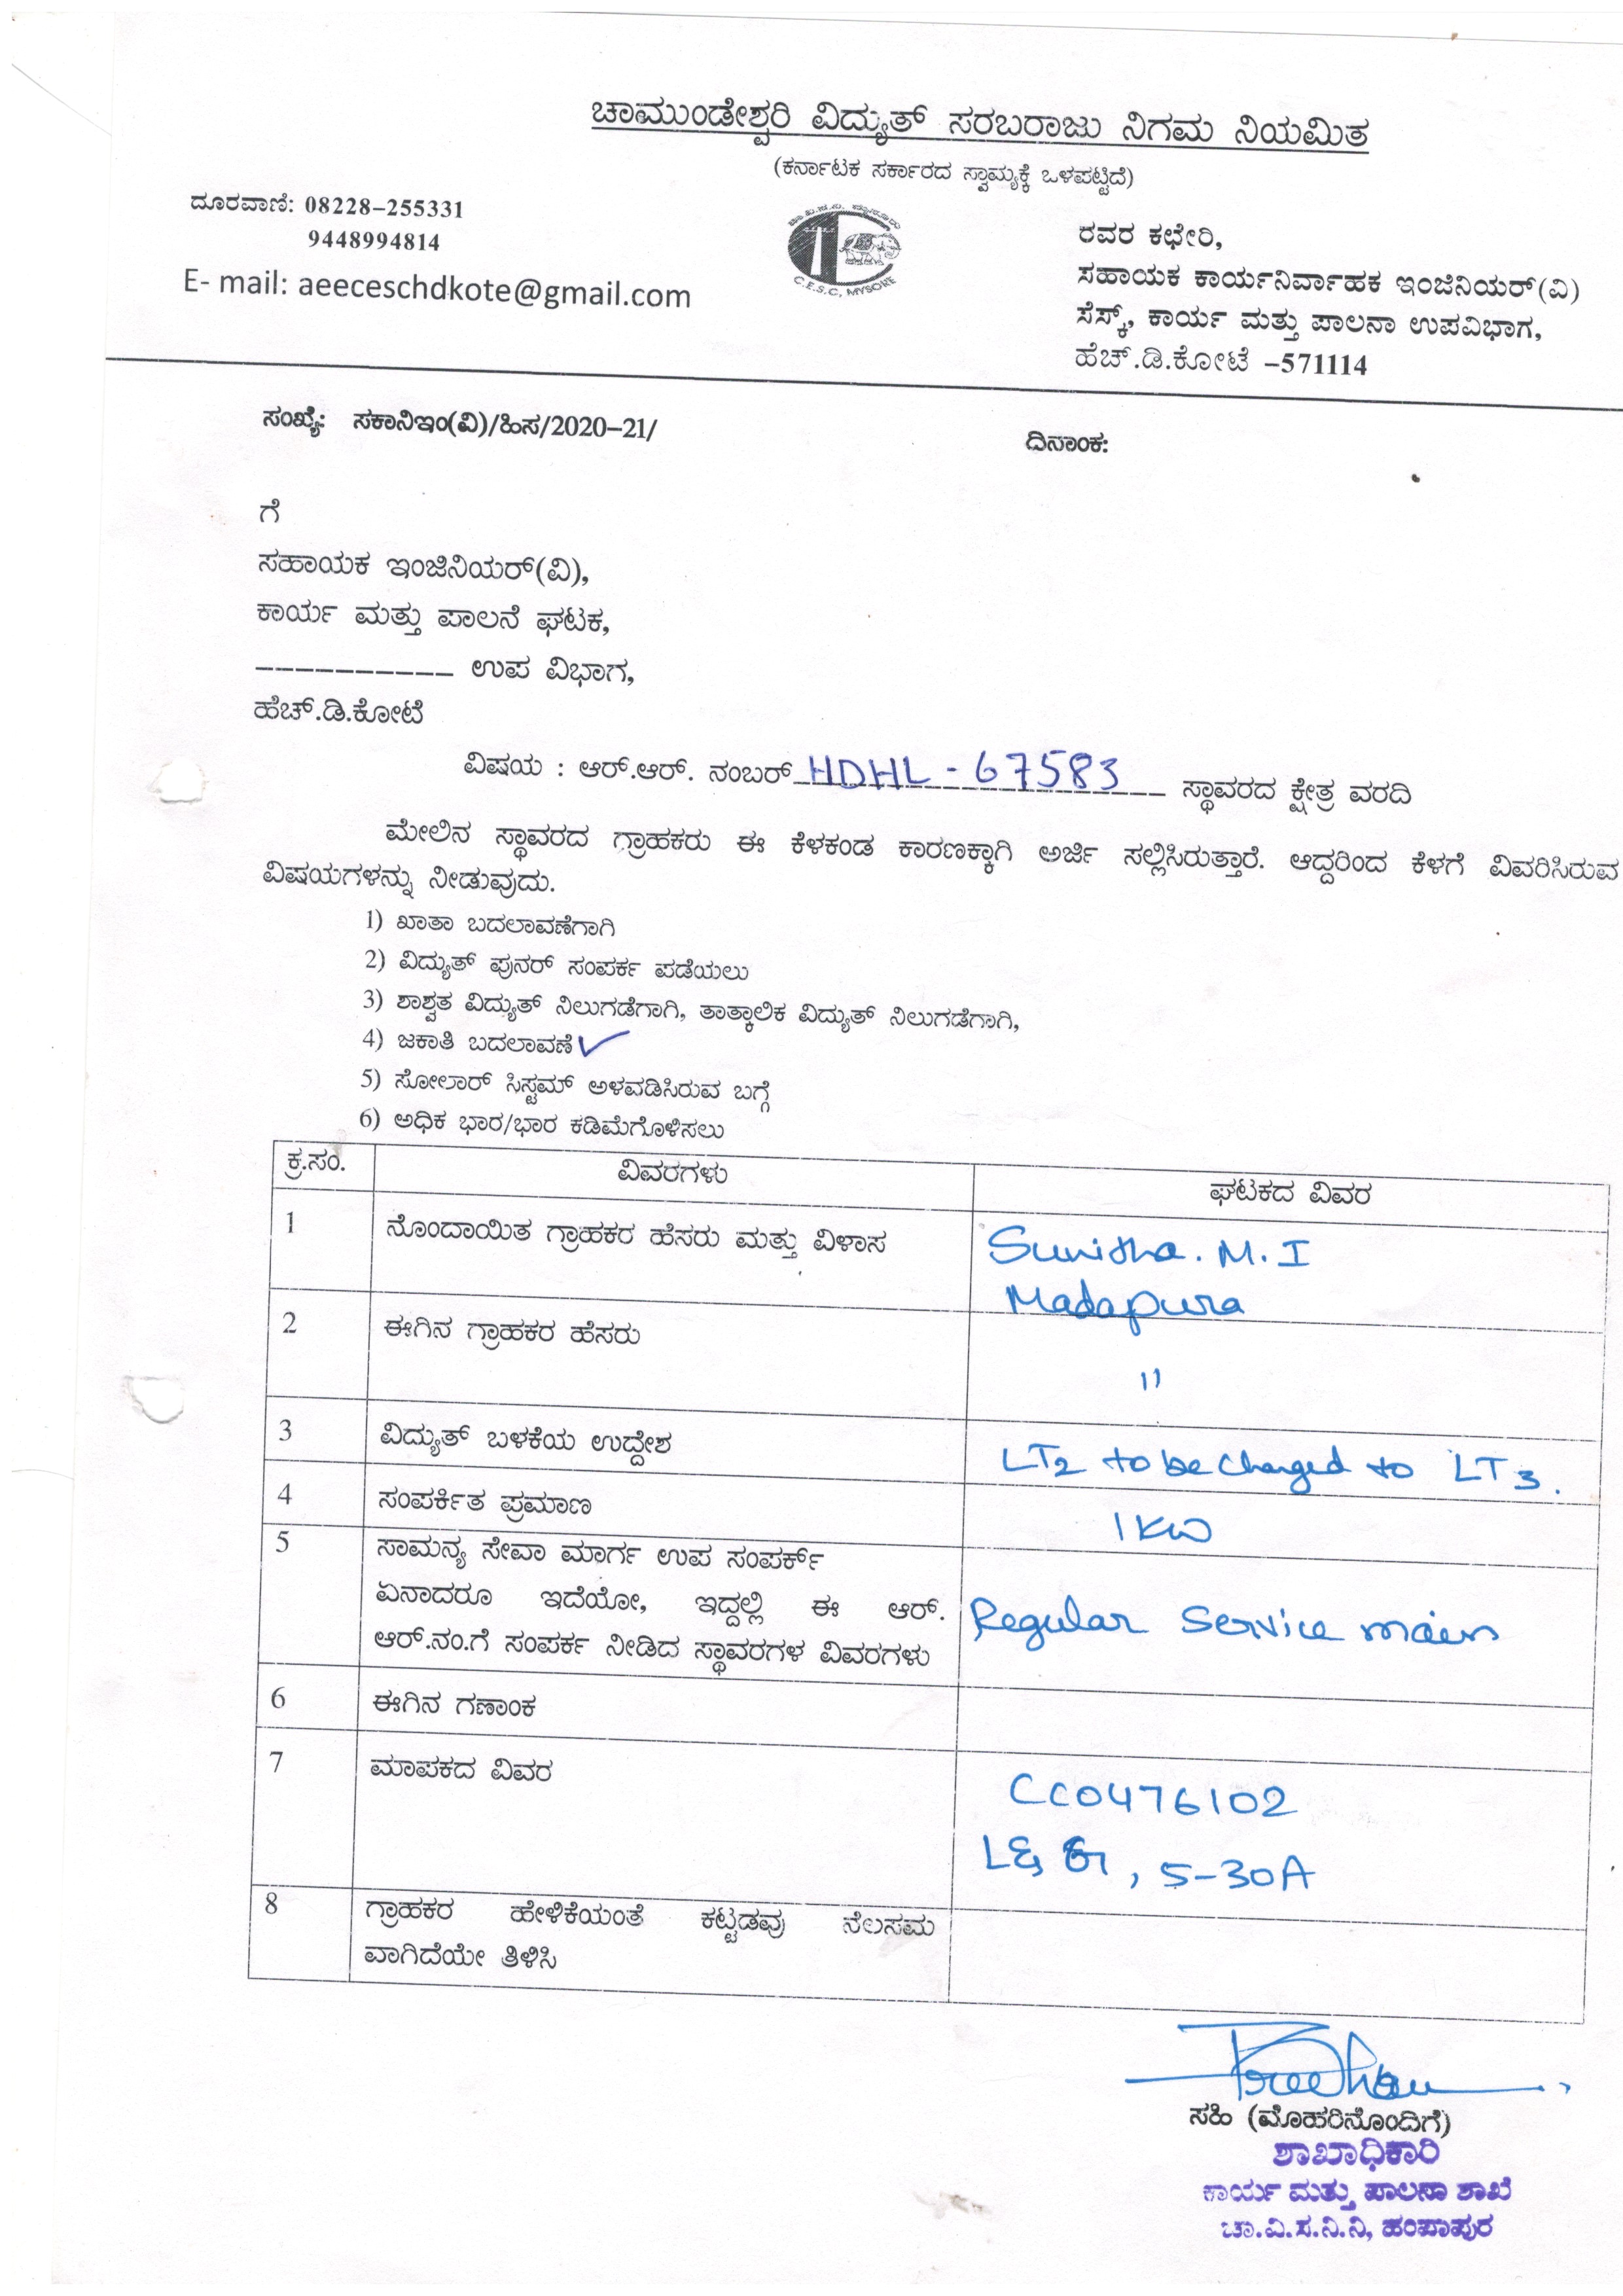 ಚಾಮುಂಡೇಶ್ವರಿ ವಿದ್ಯುತ್ ಸರಬರಾಜು ನಿಗಮ ನಿಯಮಿತ
(ಕರ್ನಾಟಕ ಸರ್ಕಾರದ ಸ್ವಾಮ್ಯಕ್ಕೆ ಒಳಪಟ್ಟಿದೆ)
ದೂರವಾಣಿ: 08228-255331
9448994814
E- mail: aeeceschdkote@gmail.com
C.E.S.C, MYSORE
ರವರ ಕಛೇರಿ,
ಸಹಾಯಕ ಕಾರ್ಯನಿರ್ವಾಹಕ ಇಂಜಿನಿಯರ್(ವಿ)
ಸೆಸ್ಕ್, ಕಾರ್ಯ ಮತ್ತು ಪಾಲನಾ ಉಪವಿಭಾಗ,
ಹೆಚ್.ಡಿ.ಕೋಟೆ -571114
ಸಂಖ್ಯೆ: ಸಕಾನಿಇಂ(ವಿ)/ಹಿಸ/2020-21/
ದಿನಾಂಕ:
ಗೆ
ಸಹಾಯಕ ಇಂಜಿನಿಯರ್(ವಿ),
ಕಾರ್ಯ ಮತ್ತು ಪಾಲನೆ ಘಟಕ,
---------- ಉಪ ವಿಭಾಗ,
ಹೆಚ್.ಡಿ.ಕೋಟೆ
ವಿಷಯ : ಆರ್.ಆರ್. ನಂಬರ್ HDHL - 67583 ಸ್ಥಾವರದ ಕ್ಷೇತ್ರ ವರದಿ
ಮೇಲಿನ ಸ್ಥಾವರದ ಗ್ರಾಹಕರು ಈ ಕೆಳಕಂಡ ಕಾರಣಕ್ಕಾಗಿ ಅರ್ಜಿ ಸಲ್ಲಿಸಿರುತ್ತಾರೆ. ಆದ್ದರಿಂದ ಕೆಳಗೆ ವಿವರಿಸಿರುವ
ವಿಷಯಗಳನ್ನು ನೀಡುವುದು.
1) ಖಾತಾ ಬದಲಾವಣೆಗಾಗಿ
2) ವಿದ್ಯುತ್ ಪುನರ್ ಸಂಪರ್ಕ ಪಡೆಯಲು
3) ಶಾಶ್ವತ ವಿದ್ಯುತ್ ನಿಲುಗಡೆಗಾಗಿ, ತಾತ್ಕಾಲಿಕ ವಿದ್ಯುತ್ ನಿಲುಗಡೆಗಾಗಿ,
4) ಜಕಾತಿ ಬದಲಾವಣೆ ✓
5) ಸೋಲಾರ್ ಸಿಸ್ಟಮ್ ಅಳವಡಿಸಿರುವ ಬಗ್ಗೆ
6) ಅಧಿಕ ಭಾರ/ಭಾರ ಕಡಿಮೆಗೊಳಿಸಲು
ಕ್ರ.ಸಂ. ವಿವರಗಳು ಘಟಕದ ವಿವರ
1 ನೊಂದಾಯಿತ ಗ್ರಾಹಕರ ಹೆಸರು ಮತ್ತು ವಿಳಾಸ Sunitha. M. I
Madapura
2 ಈಗಿನ ಗ್ರಾಹಕರ ಹೆಸರು
"
3 ವಿದ್ಯುತ್ ಬಳಕೆಯ ಉದ್ದೇಶ LT2 to be changed to LT3.
4 ಸಂಪರ್ಕಿತ ಪ್ರಮಾಣ 1 KW
5 ಸಾಮನ್ಯ ಸೇವಾ ಮಾರ್ಗ ಉಪ ಸಂಪರ್ಕ್
ಏನಾದರೂ ಇದೆಯೋ, ಇದ್ದಲ್ಲಿ ಈ ಆರ್.
ಆರ್.ನಂ.ಗೆ ಸಂಪರ್ಕ ನೀಡಿದ ಸ್ಥಾವರಗಳ ವಿವರಗಳು
Regular Service main
6 ಈಗಿನ ಗಣಾಂಕ
7 ಮಾಪಕದ ವಿವರ
CC0476102
L& G, 5-30A
8 ಗ್ರಾಹಕರ ಹೇಳಿಕೆಯಂತೆ ಕಟ್ಟಡವು ನೆಲಸಮ
ವಾಗಿದೆಯೇ ತಿಳಿಸಿ
ಸಹಿ (ಮೊಹರಿನೊಂದಿಗೆ)
ಶಾಖಾಧಿಕಾರಿ
ಕಾರ್ಯ ಮತ್ತು ಪಾಲನಾ ಶಾಖೆ
ಚಾ.ವಿ.ಸ.ನಿ.ನಿ, ಹಂಪಾಪುರ